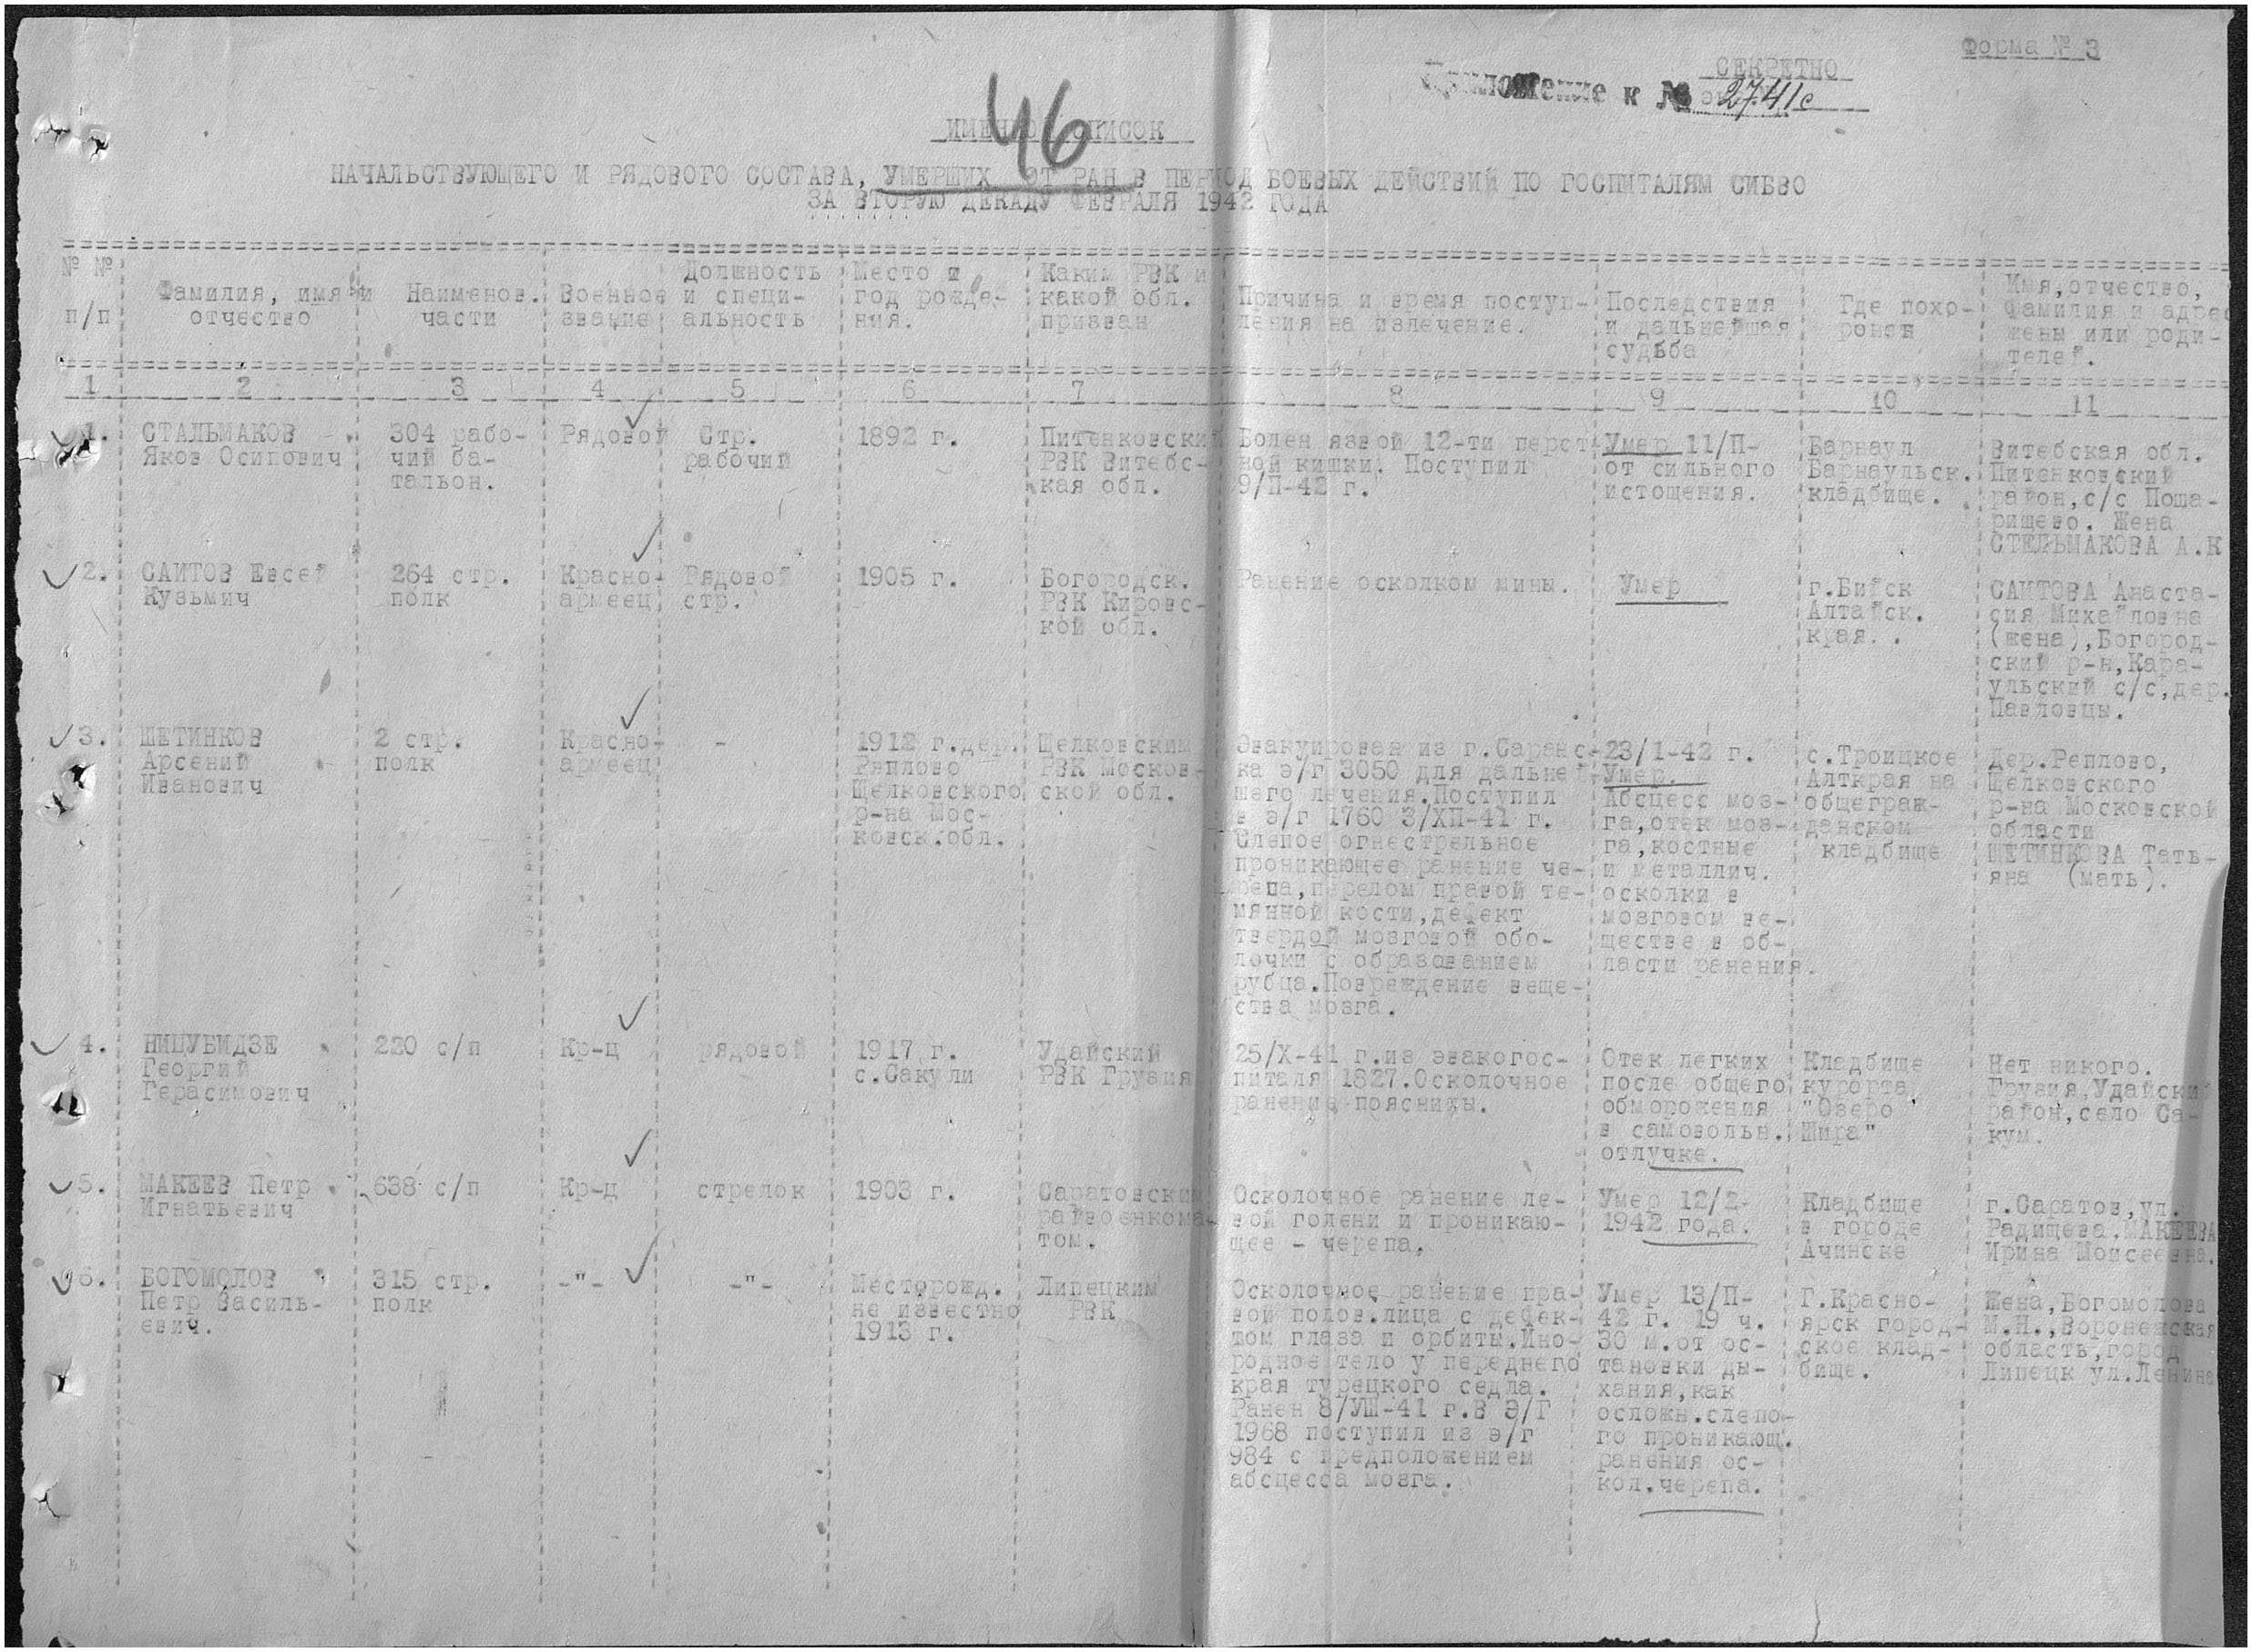 Форма № 3
СЕКРЕТНО
Приложение к № 2741с
46
ИМЕННОЙ СПИСОК
НАЧАЛЬСТВУЮЩЕГО И РЯДОВОГО СОСТАВА, УМЕРШИХ ОТ РАН В ПЕРИОД БОЕВЫХ ДЕЙСТВИЙ ПО ГОСПИТАЛЯМ СИБВО
ЗА ВТОРУЮ ДЕКАДУ ФЕВРАЛЯ 1942 ГОДА
№ №
п/п
Фамилия, имя и
отчество
Наименов.
части
Военное
звание
Должность
и специ-
альность
Место и
год рожде-
ния.
Каким РВК и
какой обл.
призван
Причина и время поступ-
ления на излечение.
Последствия
и дальнейшая
судьба
Где похо-
ронен
Имя,отчество,
Фамилия и адрес
жены или роди-
телей.
1 2 3 4 5 6 7 8 9 10 11
1.
СТАЛЬМАКОВ
Яков Осипович
304 рабо-
чий ба-
тальон.
Рядовой
Стр.
рабочий
1892 г.
Питенковский
РВК Витебс-
кая обл.
Болен язвой 12-ти перст
ной кишки. Поступил
9/П-42 г.
Умер 11/П-
от сильного
истощения.
Барнаул
Барнаульск.
кладбище.
Витебская обл.
Питенковский
район,с/с Поша-
рищево. Жена
СТЕЛЬМАКОВА А.К
2.
САИТОВ Евсей
Кузьмич
264 стр.
полк
Красно-
армеец
Рядовой
стр.
1905 г.
Богородск.
РВК Кировс-
кой обл.
Ранение осколком мины.
Умер
г.Бийск
Алтайск.
края.
САИТОВА Анаста-
сия Михайловна
(жена),Богород-
ский р-н,Кара-
ульский с/с,дер.
Павловцы.
3.
ШЕТИНКОВ
Арсений
Иванович
2 стр.
полк
Красно-
армеец
-
1912 г.дер.
Реплово
Щелковского
р-на Мос-
ковск.обл.
Щелковским
РВК Москов-
ской обл.
Эвакуирован из г.Саранс-
ка э/г 3050 для дальней-
шего лечения.Поступил
в э/г 1760 3/ХП-41 г.
Слепое огнестрельное
проникающее ранение че-
репа,перелом правой те-
мянной кости,дефект
твердой мозговой обо-
лочки с образованием
рубца.Повреждение веще-
ства мозга.
23/1-42 г.
Умер.
Абсцесс моз-
га,отек моз-
га,костные
и металлич.
осколки в
мозговом ве-
ществе в об-
ласти ранения.
с.Троицкое
Алткрая на
общеграж-
данском
кладбище
Дер.Реплово,
Щелковского
р-на Московской
области
ШЕТИНКОВА Тать-
яна (мать).
4.
НИЦУБИДЗЕ
Георгий
Герасимович
220 с/п
Кр-ц
рядовой
1917 г.
с.Сакули
Удайский
РВК Грузия
25/Х-41 г.из эвакогос-
питаля 1827.Осколочное
ранение поясницы.
Отек легких
после общего
обморожения
в самовольн.
отлучке.
Кладбище
курорта
"Озеро
Шира"
Нет никого.
Грузия,Удайский
район,село Са-
кум.
5.
МАКЕЕВ Петр
Игнатьевич
638 с/п
Кр-ц
стрелок
1903 г.
Саратовским
райвоенкома-
том.
Осколочное ранение ле-
вой голени и проникаю-
щее - черепа,
Умер 12/2-
1942 года.
Кладбище
в городе
Ачинске
г.Саратов,ул.
Радищева.МАКЕЕВА
Ирина Моисеевна.
6.
БОГОМОЛОВ
Петр Василь-
евич.
315 стр.
полк
-"-
-"-
Месторожд.
не известно
1913 г.
Липецким
РВК
Осколочное ранение пра-
вой полов.лица с дефек-
том глаза и орбиты.Ино-
родное тело у переднего
края турецкого седла.
Ранен 8/УШ-41 г.В Э/Г
1968 поступил из э/г
984 с предположением
абсцесса мозга.
Умер 13/П-
42 г. 19 ч.
30 м.от ос-
тановки ды-
хания,как
осложн.слепо-
го проникающ.
ранения ос-
кол.черепа.
Г.Красно-
ярск город-
ское клад-
бище.
Жена,Богомолова
М.Н.,Воронежская
область,город
Липецк ул.Ленина